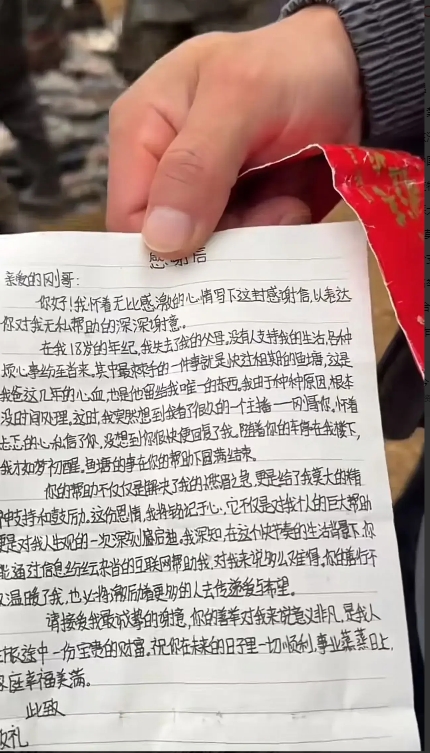 感谢信
亲爱的刚哥：
你好！我怀着无比感激的心情写下这封感谢信，以表达
你对我无私帮助的深深谢意。
在我18岁的年纪，我失去了我的父母，没有人支持我的生活，各种
烦心事纷至沓来。其中最棘手的一件事就是快过租期的鱼塘，这是
我爸这几年的心血，也是他留给我唯一的东西，我由于种种原因，根本
没时间处理。这时，我突然想到我看了很久的一个主播——冈哥你。怀着
忐忑的心私信了你，没想到你很快便回复了我。随着你的车停在我楼下，
我才如梦初醒，鱼塘的事在你的帮助下圆满结束。
你的帮助不仅仅是解决了我的燃眉之急，更是给了我莫大的精
神支持和鼓励力。这份恩情，我将铭记于心，它不仅是对我个人的巨大帮助
更是对我人生观的一次深刻启迪。我深知，在这个快节奏的生活背景下，你
能通过信息纷纭杂沓的互联网帮助我，对我来说多么难得，你的善行不
仅温暖了我，也必将激励着更多的人去传递爱与希望。
请接受我最诚挚的谢意，你的善举对我来说意义非凡，是我人
生旅途中一份宝贵的财富。祝你在未来的日子里一切顺利，事业蒸蒸日上，
家庭幸福美满。
此致
敬礼